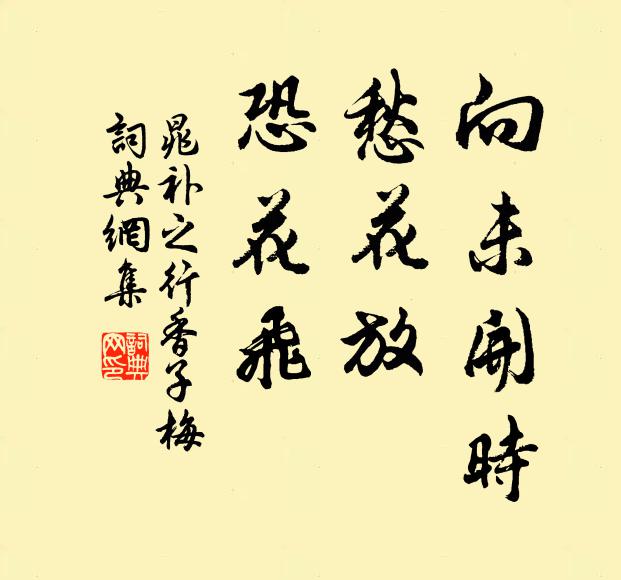 向未開時
愁花放
恐花飛
晁补之行香子梅
詞典網集
詞典網印